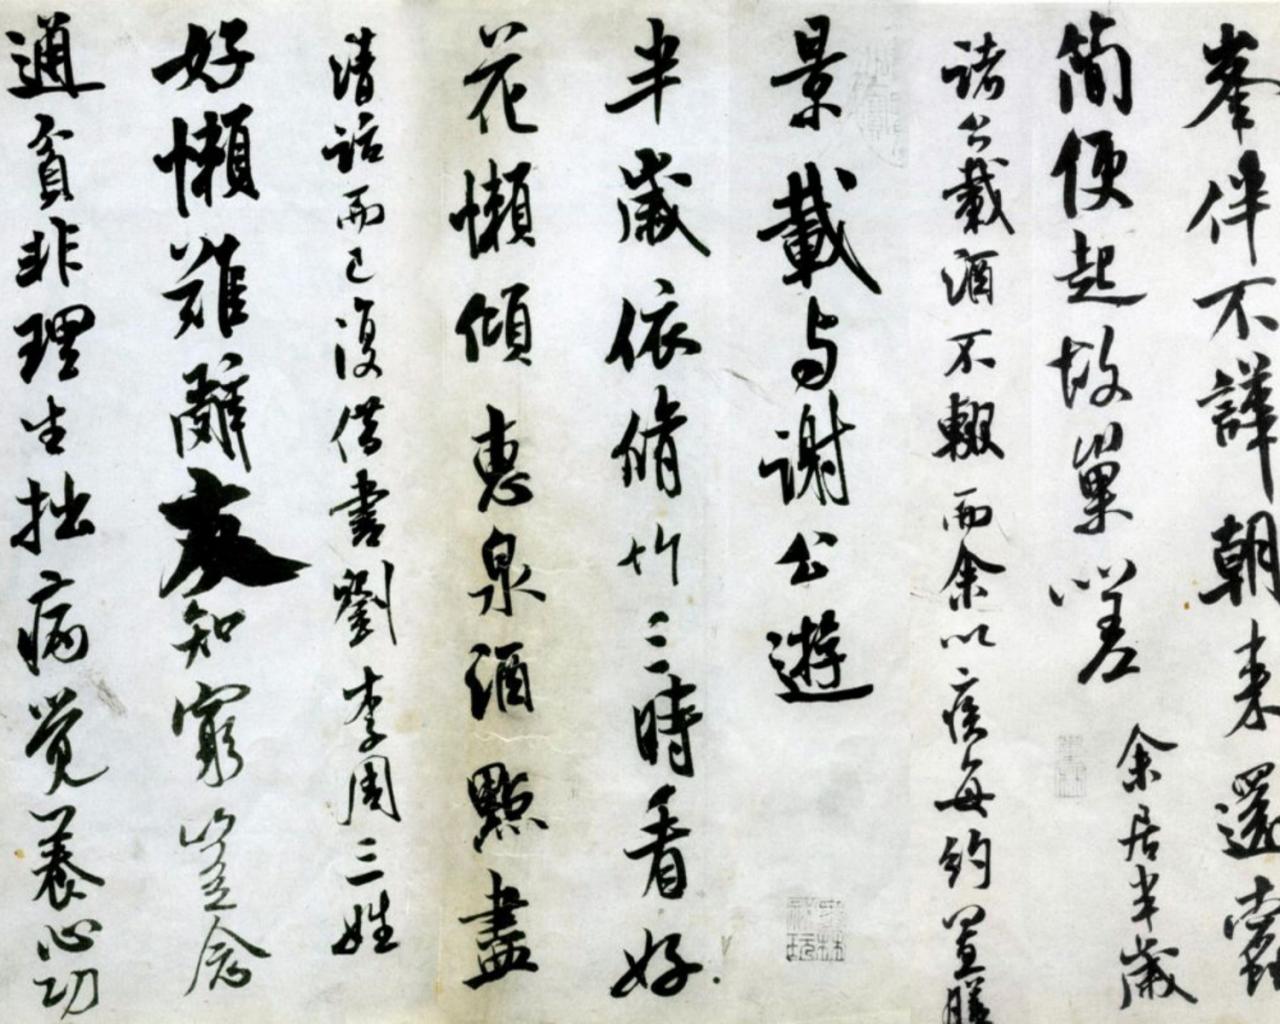 峯伴不譁朝来還
簡便起故巢嗟
余居半歲
諸公載酒不輟而余以疾每約置膳
景載与謝公遊
半歲依脩竹三時看好
花懶傾惠泉酒點盡
清話而已復借書劉李周三姓
好懶難辭友知窮豈念
通貧非理生拙病覺養心功